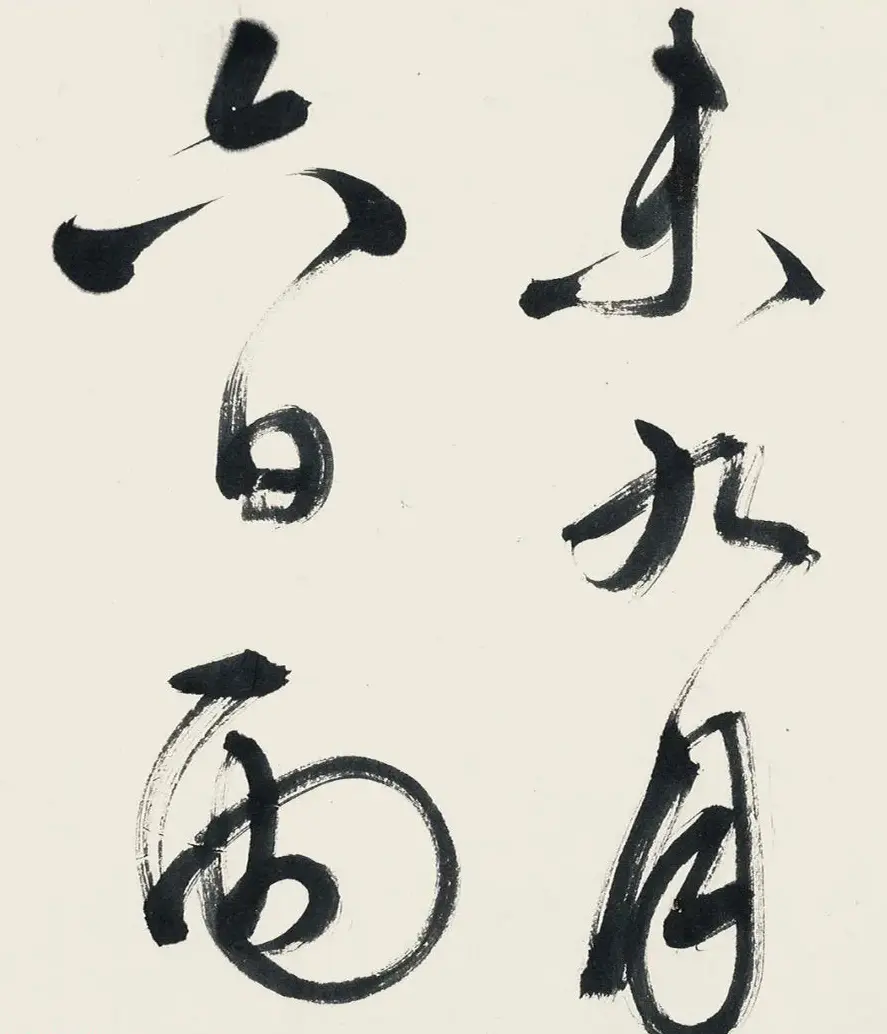 未九月
六日雨